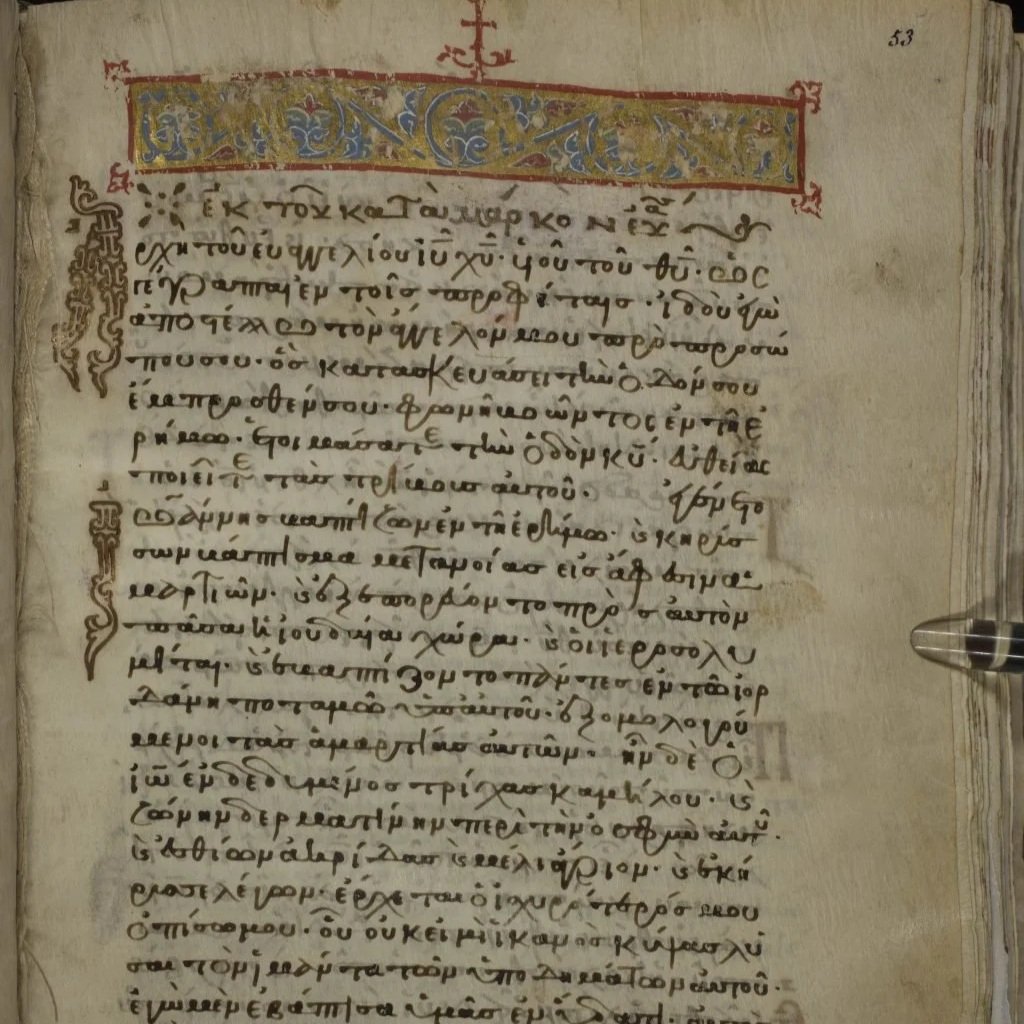 53
ἐκ τοῦ κατὰ μάρκον
ρχη τοῦ ἐυαγγελίου ἰῦ χῦ· ὑιοῦ τοῦ θῦ· ὡς
γέγραπται ἐν τοῖς προφήταις· ἰδοὺ ἐγὼ
αποστέλλω τὸν ἄγγελόν μου πρὸ προσώ
που σου· ὃς κατασκευάσει τὴν ὁδόν σου
ἔμπροσθέν σου· φωνὴ βοῶντος ἐν τῆ ἐ
ρήμω· ἑτοιμάσατε τὴν ὁδὸν κῦ· ἐυθείας
ποιεῖτε τὰς τρίβους αὐτοῦ· ἐγένετο
ἰωάννης βαπτίζων ἐν τῆ ἐρήμω· καὶ κηρύσ
σων βάπτισμα μετανοίας εἰς ἄφεσιν ἁ
μαρτιῶν· καὶ ἐξεπορεύοντο πρὸς αὐτὸν
πᾶσα ἡ ἰουδαία χώρα· καὶ ὁι ἱεροσολυ
μίται· καὶ ἐβαπτίζοντο πάντες ἐν τῶ ἰορ
δάνη ποταμῶ ὑπ' αὐτοῦ· ἐξομολογού
μενοι τὰς ἁμαρτίας αὐτῶν· ἦν δὲ ὁ
ἰω ἐνδεδυμένος τρίχας καμήλου· καὶ
ζώνην δερματίνην περὶ τὴν ὀσφὺν αὐτοῦ·
καὶ ἐσθίων ἀκρίδας καὶ μέλι ἄγριον· καὶ ἐκή
ρυσσε λέγων· ἔρχεται ὁ ἰσχυρότερός μου
ὀπίσω μου· οὗ οὐκ εἰμὶ ἱκανὸς κύψας λῦ
σαι τὸν ἱμάντα τῶν ὑποδημάτων αὐτοῦ·
ἐγὼ μὲν ἐβάπτισα ὑμᾶς ἐν ὕδατι·